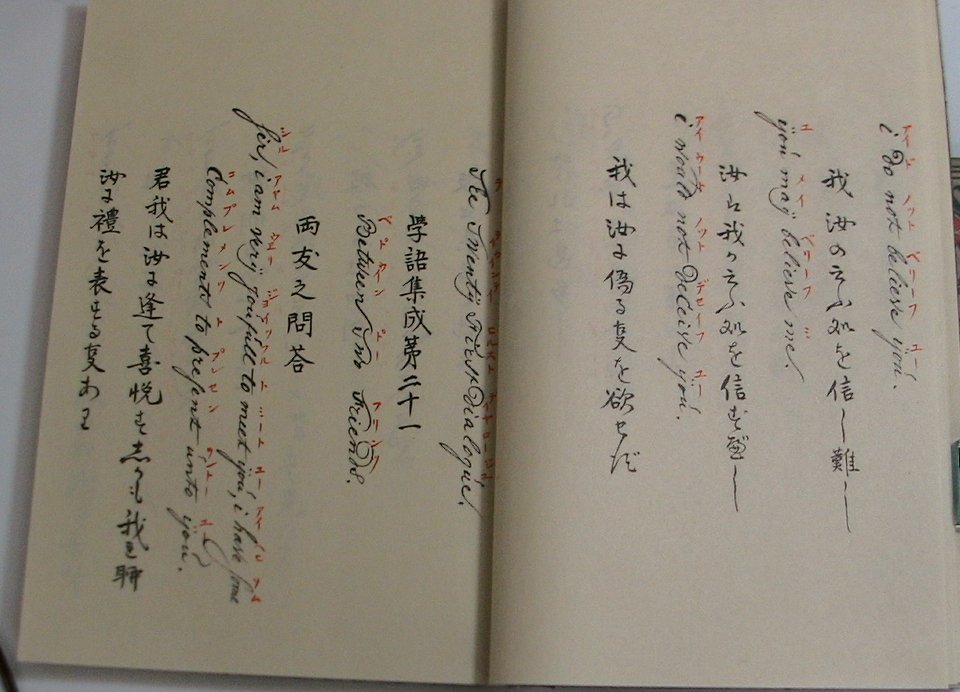 アイ ド ノット ベリーフ ユー
i do not believe you.
我 汝の云ふ処を信し難し
ユ メイ ベリーフ ミ
you may believe me.
汝は我が云ふ処を信ずべし
アイ ウールド ノット デセーフ ユー
i would not deceive you.
我は汝に偽る事を欲せず
The Twenty First Dialogue.
學語集成第二十一
ベトウヰン トー フリンツ
Between two Friends.
両友之問答
シル アヤム ウェリ ジョイフル ト ミート ユー アイ
sir, i am verÿ joyfull to meet you, i have some
コムプレメンツ ト プレセン ウントー ユ
Complements to present unto you.
君我は汝に逢て喜悦す 我 聊
汝に禮を表する事あり